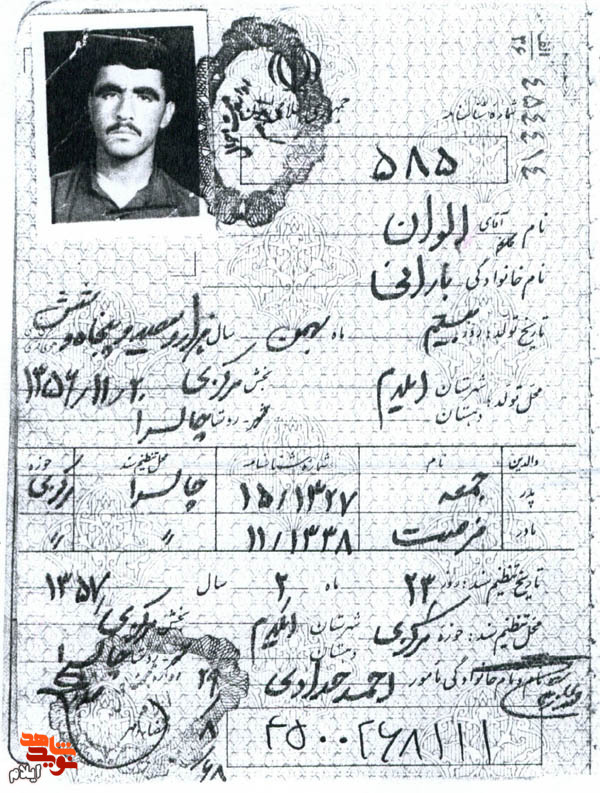 شماره شناسنامه
۵۸۵
نام آقای الوان
نام خانوادگی بارانی
تاریخ تولد: روز بیستم ماه بهمن سال هزار و سیصد و پنجاه و شش
۱۳۵۶/۱۱/۲۰
محل تولد: شهرستان ایلام بخش مرکزی
دهستان روستا چالسرا
والدین نام شماره شناسنامه محل تنظیم سند حوزه
پدر جمعه ۱۵/۱۳۲۷ چالسرا مرکزی
مادر فرصت ۱۱/۱۳۳۸ " "
تاریخ تنظیم سند: روز ۲۳ ماه ۲ سال ۱۳۵۷
محل تنظیم سند: حوزه مرکزی شهرستان ایلام بخش مرکزی
دهستان
نام و نام خانوادگی مأمور احمد حدادی
۲۹/۸/۶۸
۴۵۰۰۲۶۸۱۱۱
نوید شاهد
ایلام